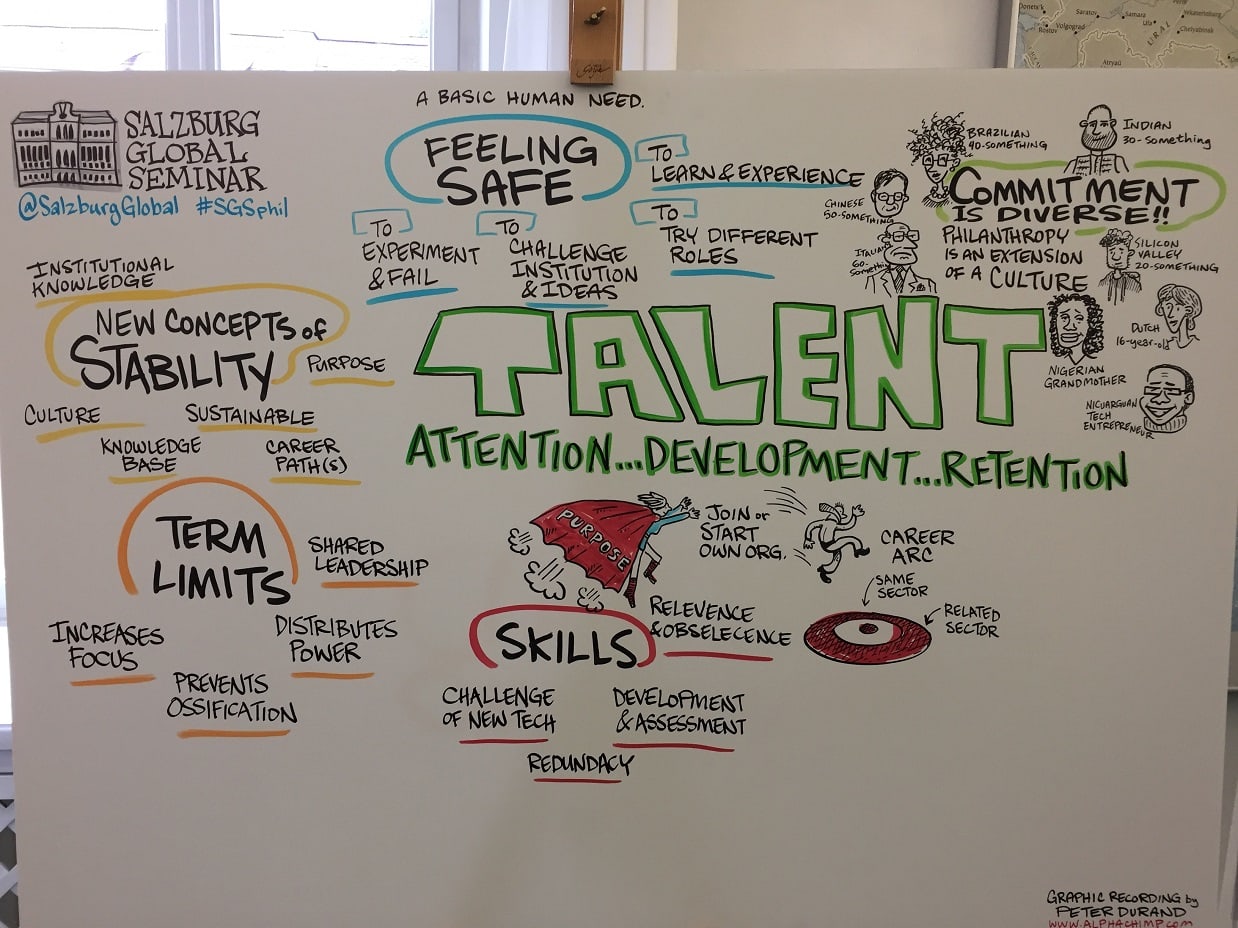 SALZBURG
GLOBAL
SEMINAR
@SalzburgGlobal #SGSphil
A BASIC HUMAN NEED.
FEELING
SAFE
TO
LEARN & EXPERIENCE
TO
EXPERIMENT
& FAIL
TO
CHALLENGE
INSTITUTION
& IDEAS
TO
TRY DIFFERENT
ROLES
BRAZILIAN
40-SOMETHING
INDIAN
30-something
CHINESE
50-SOMETHING
ITALIAN
60-
Somethi
COMMITMENT
IS DIVERSE!!
PHILANTHROPY
IS AN EXTENSION
OF A CULTURE
SILICON
VALLEY
20-SOMETHING
DUTCH
16-year-old
NIGERIAN
GRANDMOTHER
NICUARGUAN
TECH
ENTREPRENEUR
INSTITUTIONAL
KNOWLEDGE
NEW CONCEPTS of
STABILITY
PURPOSE
CULTURE
SUSTAINABLE
KNOWLEDGE
BASE
CAREER
PATH(S)
TALENT
ATTENTION...DEVELOPMENT...RETENTION
TERM
LIMITS
SHARED
LEADERSHIP
INCREASES
FOCUS
DISTRIBUTES
POWER
PREVENTS
OSSIFICATION
PURPOSE
JOIN or
START
OWN ORG.
CAREER
ARC
SAME
SECTOR
RELATED
SECTOR
SKILLS
RELEVENCE
& OBSELECENCE
CHALLENGE
OF NEW TECH
DEVELOPMENT
& ASSESSMENT
REDUNDACY
GRAPHIC RECORDING by
PETER DURAND
WWW.ALPHACHIMP.COM
Saratov
Samara
Volgograd
Rostov
Ufa
Chelyabinsk
URAL
Atyraū